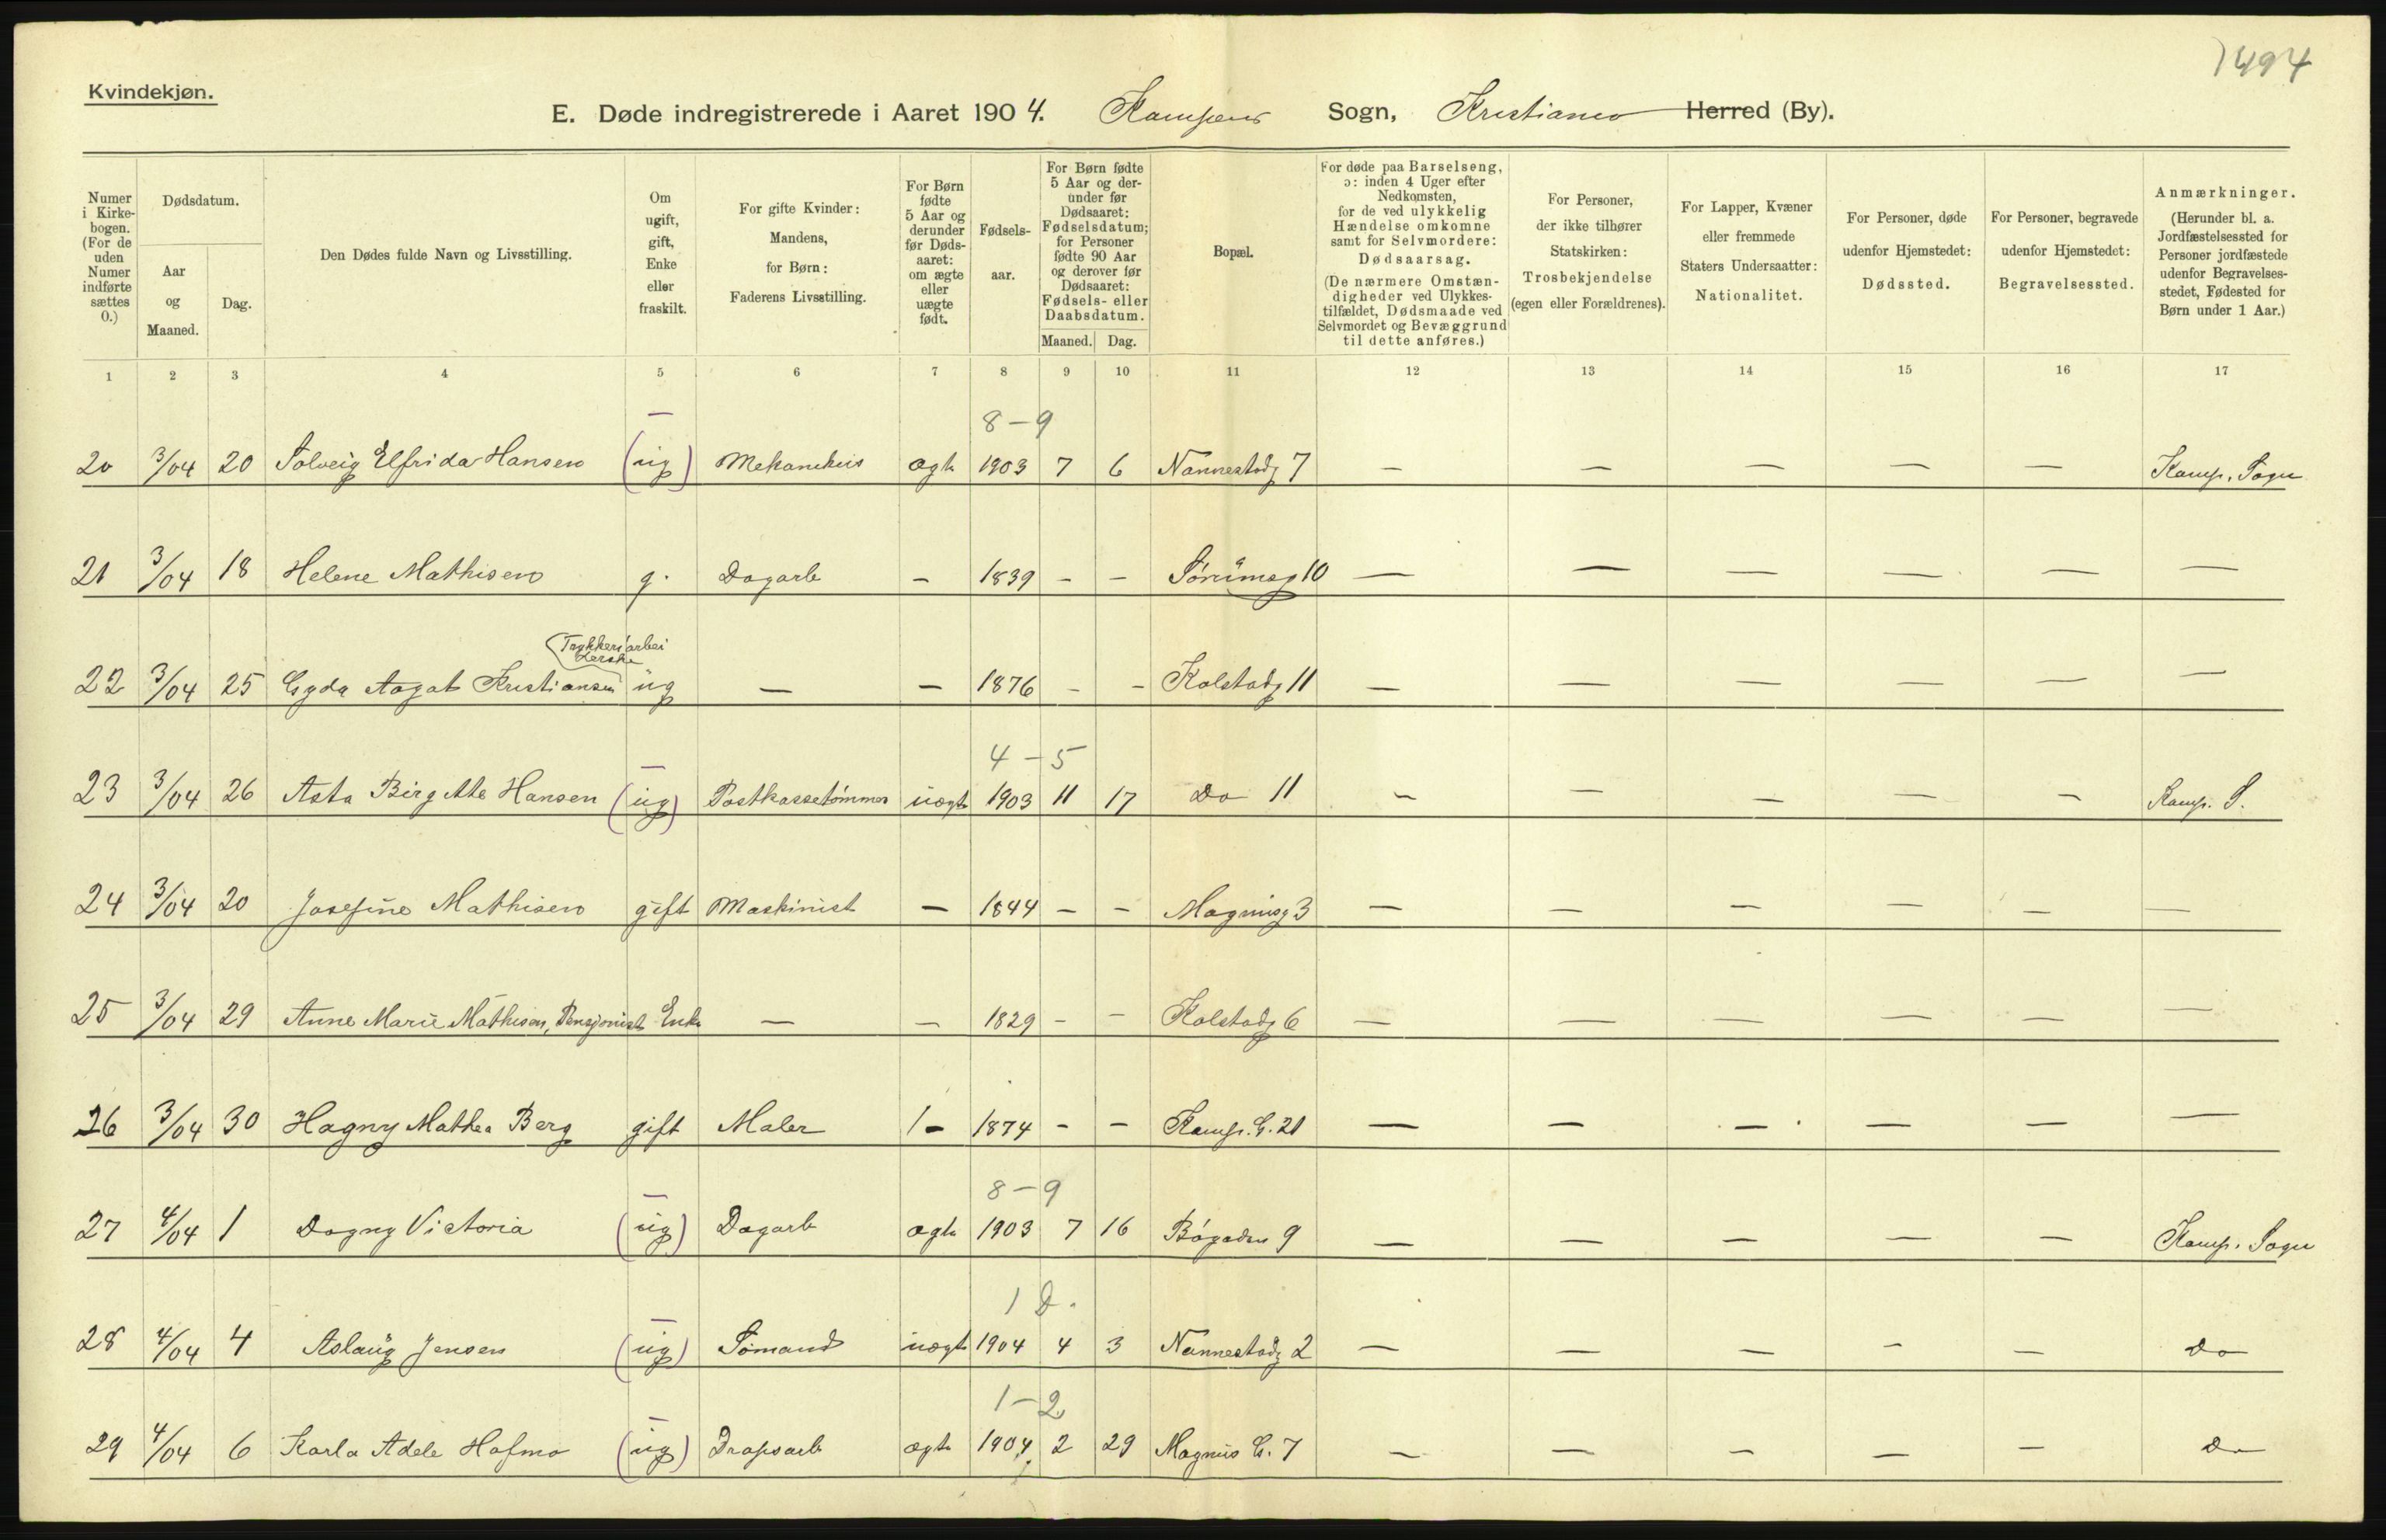 1494
Kvindekjøn.
E. Døde indregistrerede i Aaret 1904. Kampens Sogn, Kristiania Herred (By).
Numer i Kirkebogen. (For de uden Numer indførte sættes 0.)
Dødsdatum.
Aar og Maaned.
Dag.
Den Dødes fulde Navn og Livsstilling.
Om ugift, gift, Enke eller fraskilt.
For gifte Kvinder: Mandens, for Børn: Faderens Livsstilling.
For Børn fødte 5 Aar og derunder før Dødsaaret: om ægte eller uægte født.
Fødselsaar.
For Børn fødte 5 Aar og derunder før Dødsaaret: Fødselsdatum; for Personer fødte 90 Aar og derover før Dødsaaret: Fødsels- eller Daabsdatum.
Maaned. Dag.
Bopæl.
For døde paa Barselseng, ɔ: inden 4 Uger efter Nedkomsten, for de ved ulykkelig Hændelse omkomne samt for Selvmordere: Dødsaarsag. (De nærmere Omstændigheder ved Ulykkestilfældet, Dødsmaade ved Selvmordet og Bevæggrund til dette anføres.)
For Personer, der ikke tilhører Statskirken: Trosbekjendelse (egen eller Forældrenes).
For Lapper, Kvæner eller fremmede Staters Undersaatter: Nationalitet.
For Personer, døde udenfor Hjemstedet: Dødssted.
For Personer, begravede udenfor Hjemstedet: Begravelsessted.
Anmærkninger. (Herunder bl. a. Jordfæstelsessted for Personer jordfæstede udenfor Begravelsesstedet, Fødested for Børn under 1 Aar.)
1 2 3 4 5 6 7 8 9 10 11 12 13 14 15 16 17
8 – 9
20 3/04 20 Solveig Elfrida Hansen (ug) Mekanikus ægte 1903 7 6 Nannestadg 7 – – – – – Kamp. Sogn
21 3/04 18 Helene Mathisen g. Dagarb – 1839 – – 10 – – – – – –
Trykkeriarbei
derske
22 3/04 25 Gyda Aagat Kristiansen ug – – 1876 – – Kolstadg 11 – – – – – –
4 – 5
23 3/04 26 Asta Birgitte Hansen (ug) Postkassetømmer uægte 1903 11 17 Do 11 – – – – – Kamp. S.
24 3/04 20 Josefine Mathisen gift Maskinist – 1844 – – Magnusg 3 – – – – – –
25 3/04 29 Anne Marie Mathisen, Pensjonist Enke – – 1829 – – Kolstadg 6 – – – – – –
26 3/04 30 Hagny Mathea Berg gift Maler – 1874 – – Kamp. G. 21 – – – – – –
8 – 9
27 4/04 1 Dagny Victoria (ug) Dagarb ægte 1903 7 16 Bøgaden 9 – – – – – Kamp. Sogn
1 D.
28 4/04 4 Aslaug Jensen (ug) Sømand uægte 1904 4 3 Nannestadg 2 – – – – – Do
1 – 2
29 4/04 6 Karla Adele Hofmo (ug) Drapsarb ægte 1904 2 29 Magnus G. 7 – – – – – Do